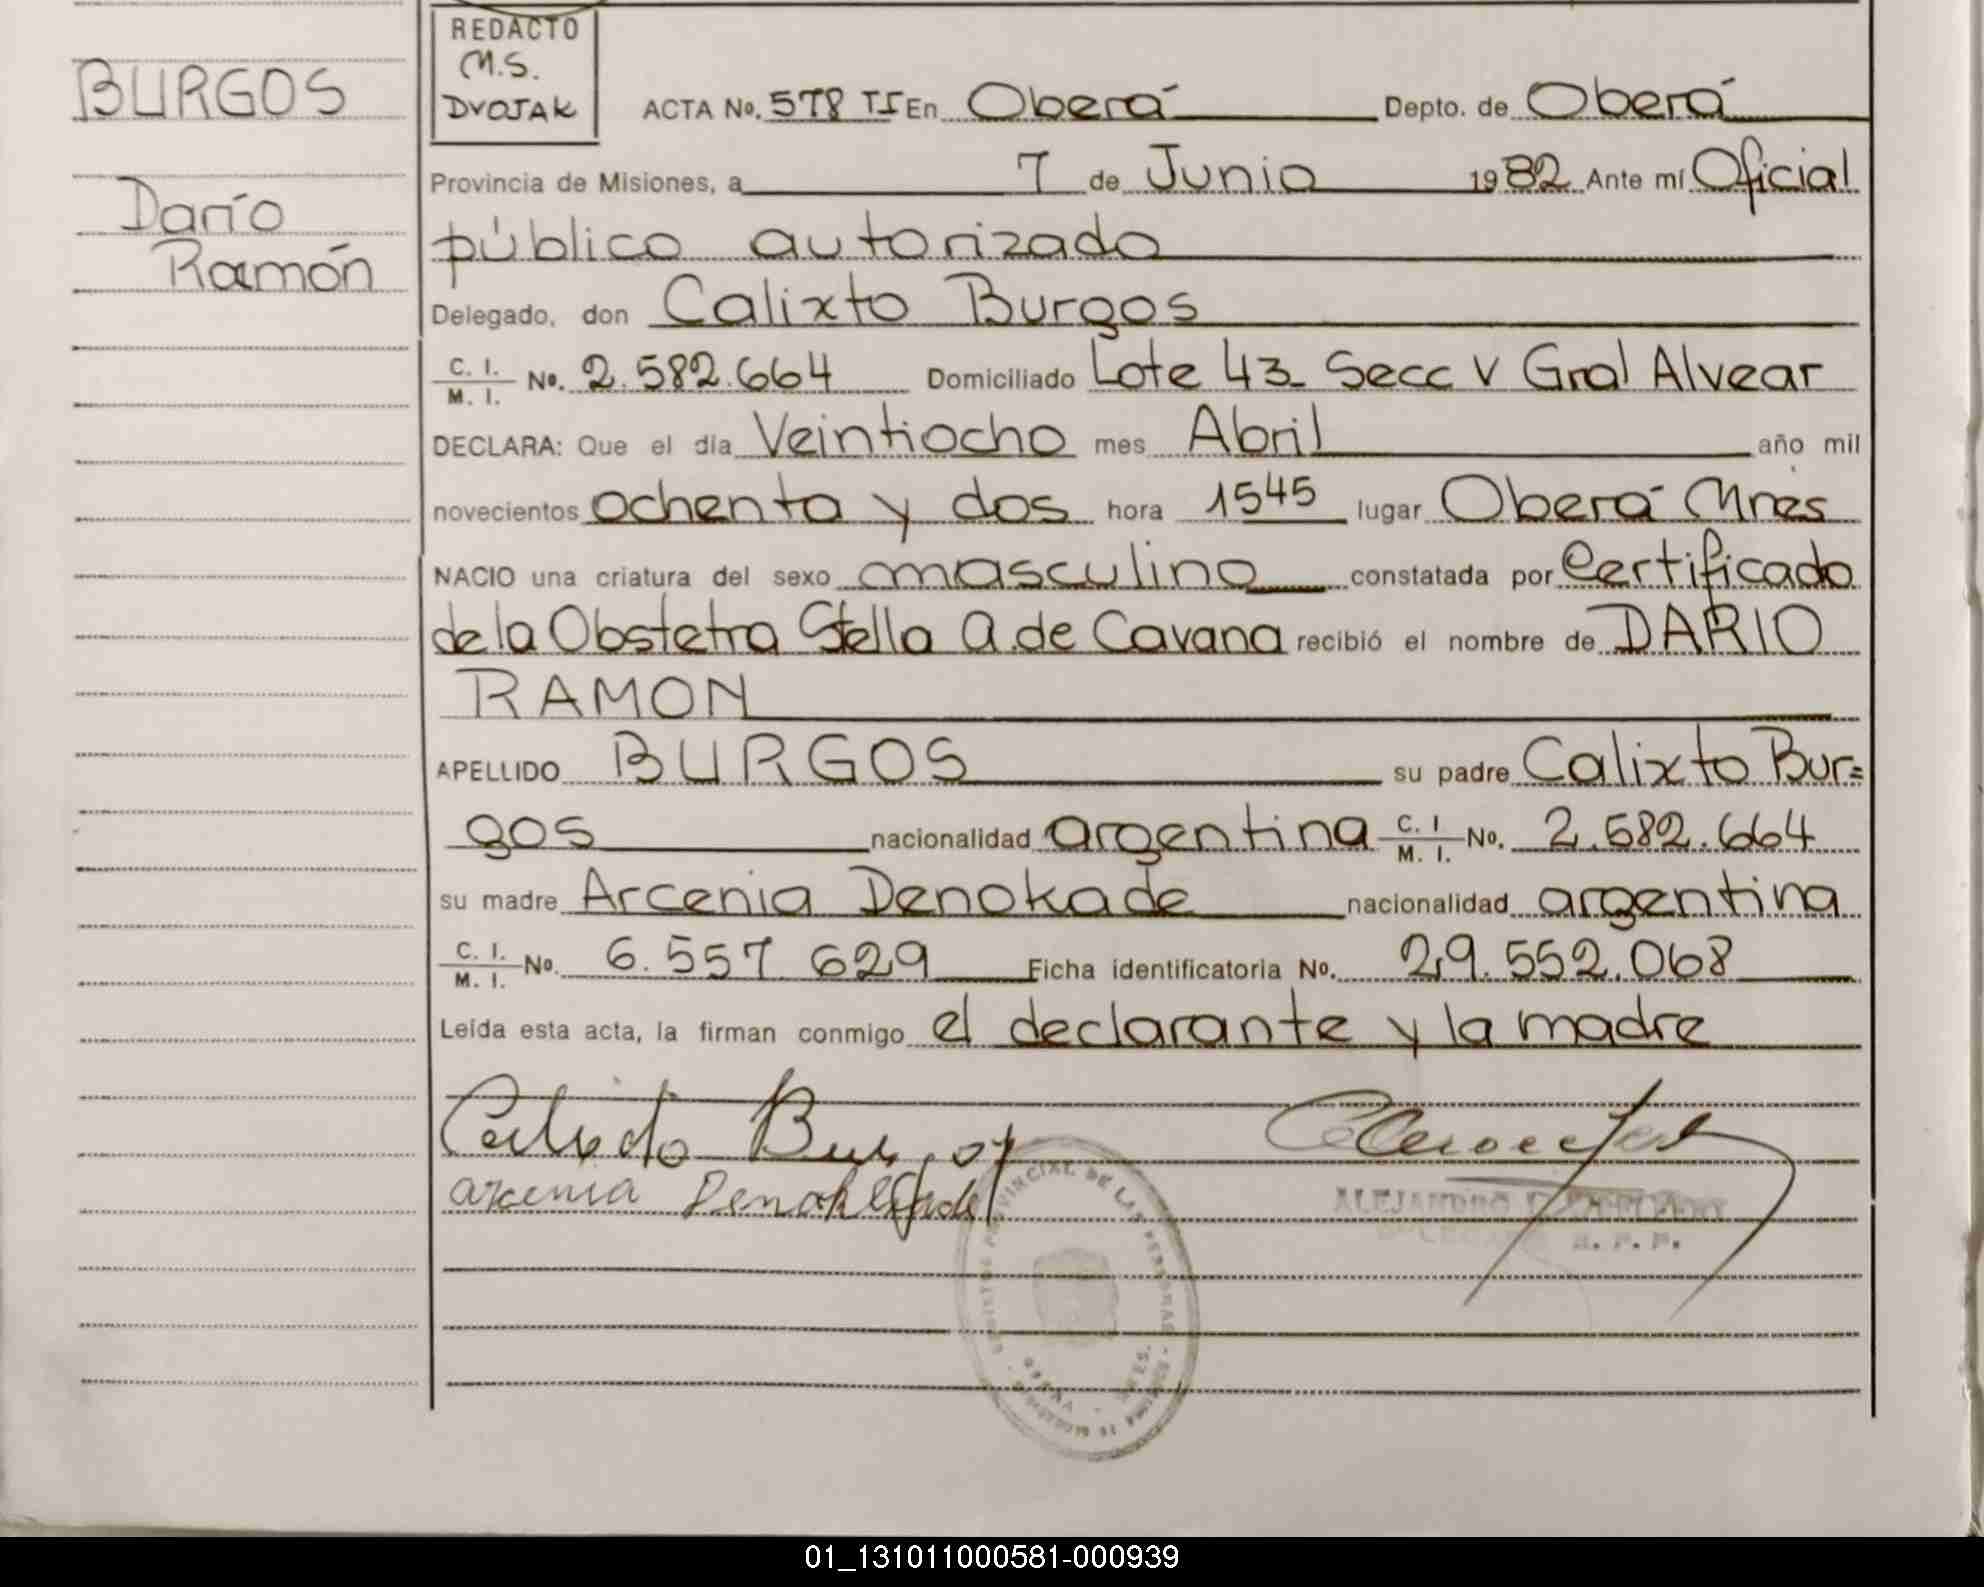 BURGOS
Darío
Ramón
REDACTO
M.S.
DVOJAK
ACTA No. 578 TI En Oberá Depto. de Oberá
Provincia de Misiones, a 7 de Junio 1982 Ante mí Oficial
público autorizado
Delegado, don Calixto Burgos
C. I. M. I. No. 2.582.664 Domiciliado Lote 43 Secc V Gral Alvear
DECLARA: Que el día Veintiocho mes Abril año mil
novecientos ochenta y dos hora 1545 lugar Oberá Mnes
NACIO una criatura del sexo masculino constatada por Certificado
de la Obstetra Stella A. de Cavana recibió el nombre de DARIO
RAMON
APELLIDO BURGOS su padre Calixto Bur=
gos nacionalidad argentina C. I. M. I. No. 2.582.664
su madre Arcenia Denokade nacionalidad argentina
C. I. M. I. No. 6.557 629 Ficha identificatoria No. 29.552.068
Leída esta acta, la firman conmigo el declarante y la madre
Calixto Burgos
arcenia
ALEJANDRO
PROVINCIAL DE LAS PERSONAS
01_131011000581-000939